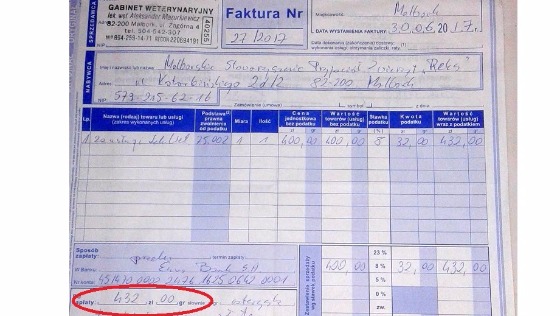 SPRZEDAWCA
GABINET WETERYNARYJNY
lek. wet. Aleksander Mazurkiewicz
82-200 Malbork, ul. Zagórna 4
tel. 504-642-307
40255
Faktura Nr
27/2017
Miejscowość
Malbork
DATA WYSTAWIENIA FAKTURY
30.06.2017r.
NABYWCA
Malborskie Stowarzyszenie Przyjaciół Zwierząt "Reks"
Adres
ul. Kotarbińskiego 2d/2 82-200 Malbork
NIP
579-215-62-16
Lp.
Nazwa (rodzaj) towaru lub usługi
(zakres wykonanych usług)
Podstawa
prawna
zwolnienia
od podatku
Miara
Ilość
Cena
jednostkowa
bez podatku
Wartość
towarów (usług)
bez podatku
Stawka
podatku
Kwota
podatku
Wartość
towarów (usług)
wraz z podatkiem
1 400,00 400,00 8 32,00 432,00
Sposób
zapłaty:
przelew
termin zapłaty
W Banku:
Euro Bank S.A.
Nr konta:
Zestawienie sprzedaży
wg stawek podatku
23 %
8 %
5 %
0 %
zw.
400,00 8 % 32,00 432,00
zapłaty: 432 zł 00 gr słownie